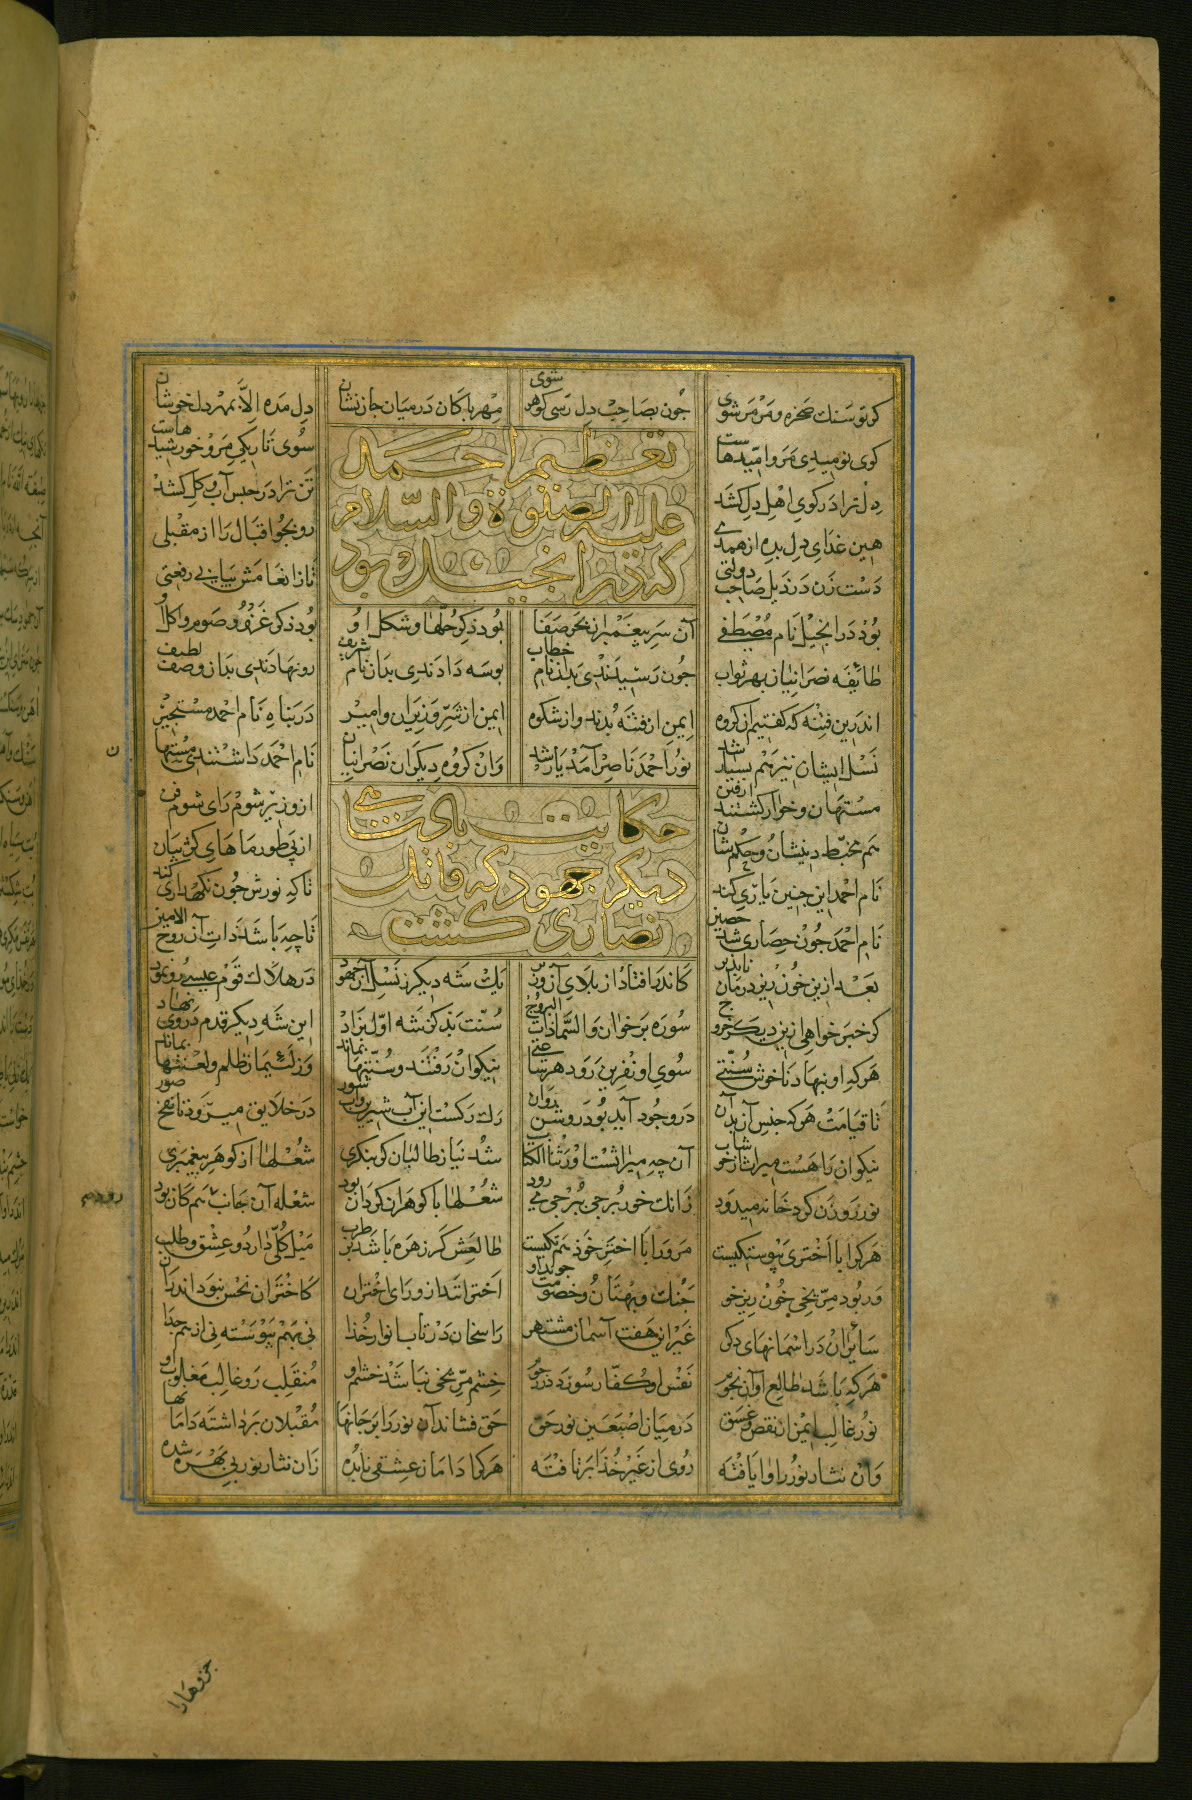 کر تو سنک صخره و مرمر شوی چون بصاحب دل رسی کوهر شوی مهر پاکان در میان جان نشان دل مده الا بمهر دل خوشان
تعظیم احمد
علیه الصلوة والسلام
که در انجیل بود
کوی نومیدی مرو امیدهاست سوی تاریکی مرو خورشیدهاست
دل ترا در کوی اهل دل کشد تن ترا در حبس آب و کل کشد
هین غذای دل بده از همدمی رو بجو اقبال را از مقبلی
دست زن در ذیل صاحب دولتی تا ز انعامش بیابی رفعتی
بود در انجیل نام مصطفی آن سر پیغمبران بحر صفا بود ذکر حلیها و شکل او بود ذکر غزو و صوم و اکل او
طائفه نصرانیان بهر ثواب چون رسیدندی بدان نام خطاب بوسه دادندی بدان نام شریف رو نهادندی بدان وصف لطیف
اندرین فتنه که کفتیم آن کروه ایمن از فتنه بدند و از شکوه ایمن از شر وزیران و امیر در پناه نام احمد مستجیر
نسل ایشان نیز هم بسیار شد نور احمد ناصر آمد یار شد وان کروه دیکران نصرانیان نام احمد داشتندی مستهان
حکایت پادشاهی
دیکر جهود که فانک
نصاری کشت
مستهان و خوار کشتند از فتن از وزیر شوم رای شوم فن
هم مخبط دینشان و حکمشان از پی طومارهای کژ بیان
نام احمد این چنین یاری کند تا که نورش چون نکهداری کند
نام احمد چون حصاری شد حصین تا چه باشد ذات آن روح الامین
بعد ازین خون ریز درمان ناپذیر کاندر افتاد از بلای آن وزیر یک شه دیکر ز نسل آن جهود در هلاک قوم عیسی رو نمود
کر خبر خواهی ازین دیکر خروج سوره بر خوان والسما ذات البروج سنت بد کز شه اول بزاد این شه دیکر قدم در وی نهاد
هر که او بنهاد ناخوش سنتی سوی او نفرین رود هر ساعتی نیکوان رفتند و سنتها بماند وز لئیمان ظلم و لعنتها بماند
تا قیامت هر که جنس آن بدان در وجود آید بود رویش بدان رک رکست این آب شیرین و آب شور در خلایق میرود تا نفخ صور
نیکوان را هست میراث از خوشاب آن چه میراثست اورثنا الکتاب شد نیاز طالبان کر بنکری شعلها از کوهر پیغمبری
شعلها با کوهران کردان بود شعله آن جانب هم کان بود
نور روزن کرد خانه میدود زانک خور برجی ببرجی می رود
هر کرا با اختری پیوستکیست مر ورا با اختر خود هم تکیست طالعش کر زهره باشد در طرب میل کلی دارد و عشق و طلب
ور بود مریخی خون ریز خو جنک و بهتان و خصومت جوید او اخترانند از ورای اختران کاختراق نحس نبود اندران
سایران در آسمانهای دکر غیر این هفت آسمان مشتهر راسخان در تاب انوار خدا نی بهم پیوسته نی از هم جدا
هر که باشد طالع او آن نجوم نفس او کفار سوزد در رجوم خشم مریخی نباشد خشم او منقلب رو غالب مغلوب خو
نور غالب ایمن از نقص و غسق در میان اصبعین نور حق حق فشاند آن نور را بر جانها مقبلان برداشته دامانها
وان نثار نور را وا یافته روی از غیر خدا بر تافته هر کرا دامان عشقی نابده زان نثار نور بی بهره شده